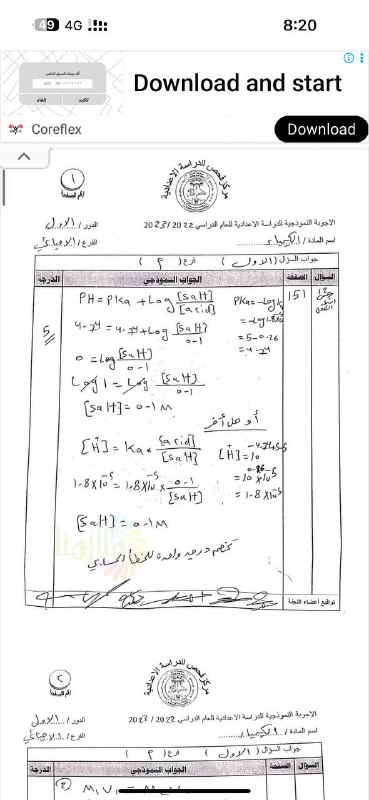 49 4G 8:20
Download and start
Coreflex
Download
١
رقم الصفحة
مركز فحص للدراسة الاعدادية
الاجوبة النموذجية للدراسة الاعدادية للعام الدراسي 2022 / 2023
الدور / الاول
اسم المادة / الكيمياء
الفرع / الاحيائي
جواب السؤال ( الاول ) فرع ( م )
السؤال الصفحة الجواب النموذجي الدرجة
151
PH = PKa + Log [salt] / [acid]
PKa = -Log Ka
4-74 = 4-74 + Log [salt] / 0-1
= -Log 1.8x10⁻⁵
5
= 5-0-26
= 4-74
0 = Log [salt] / 0-1
Log 1 = Log [salt] / 0-1
[salt] = 0-1 M
أو حل أخر
[H⁺] = Ka × [acid] / [salt]
[H⁺] = 10^-4.74+5-5
= 10^0.26 x 10⁻⁵
1-8x10⁻⁵ = 1-8x10⁻⁵ x 0-1 / [salt]
= 1-8x10⁻⁵
[salt] = 0-1 M
تخصم درجة واحدة للخطأ الحسابي
تواقيع أعضاء اللجنة
٢
رقم الصفحة
مركز فحص للدراسة الاعدادية
الاجوبة النموذجية للدراسة الاعدادية للعام الدراسي 2022 / 2023
الدور / الاول
اسم المادة / الكيمياء
الفرع / الاحيائي
جواب السؤال ( الاول ) فرع ( م )
السؤال الصفحة الجواب النموذجي الدرجة